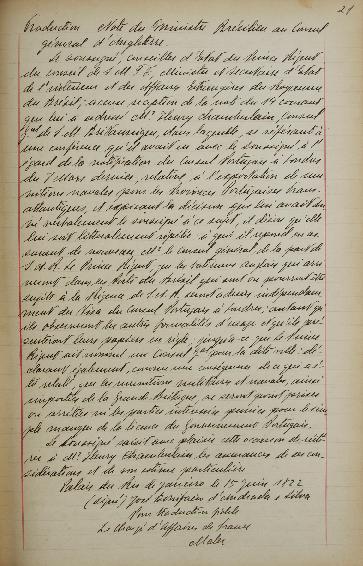 21
Traduction Note du Ministre Brésilien au Consul
général d'Angleterre.
Le soussigné, conseiller d'Etat du Prince Régent
du conseil de S M T F, Ministre et Secrétaire d'Etat
de l'intérieur et des affaires Etrangères du Royaume
du Brésil, accuse réception de la note du 14 courant
que lui a adressé Mr Henry Chamberlain, Consul
Gal de S M Britannique, dans laquelle, se référant à
une conférence qu'il avait eu avec le soussigné à l'
égard de la notification du Consul Portugais à Londres
du 7 Mars dernier, relative à l'exportation de mu-
nitions navales pour les Provinces Portugaises trans-
atlantiques, et exposant la réponse que lui avait don-
né verbalement le soussigné à ce sujet, il désire qu'elle
lui soit littéralement répétée à quoi il répond en as-
surant de nouveau Mr le consul général de la part de
S. A. R. Le Prince Régent, que les bâtiments anglais qui arri-
veront dans les Ports du Brésil qui sont ou pourront être
sujets à la Régence de S. A. R. seront admis indépendam-
ment du Visa du Consul Portugais à Londres, autant qu'
ils observeront les autres formalités d'usage et qu'ils pré-
senteront leurs papiers en règle, jusqu'à ce que le Prince
Régent ait nommé un Consul Gal pour la dite ville: dé-
clarant également, comme une conséquence de ce qui a é-
té établi, que les munitions militaires et navales, ainsi
importées de la Grande Bretagne, ne seront point prises
ou arrêtées ni les parties intéressées punies pour le sim-
ple manque de la licence du Gouvernement Portugais.
Le soussigné saisit avec plaisir cette occasion de réité-
rer à Mr Henry Chamberlain les assurances de sa con-
sidération et de son estime particulière
Palais du Rio de Janeiro le 15 juin 1822
(signé) José Bonifacio d'Andrada e Silva
Pour traduction fidèle
Le chargé d'affaires de France
Maler